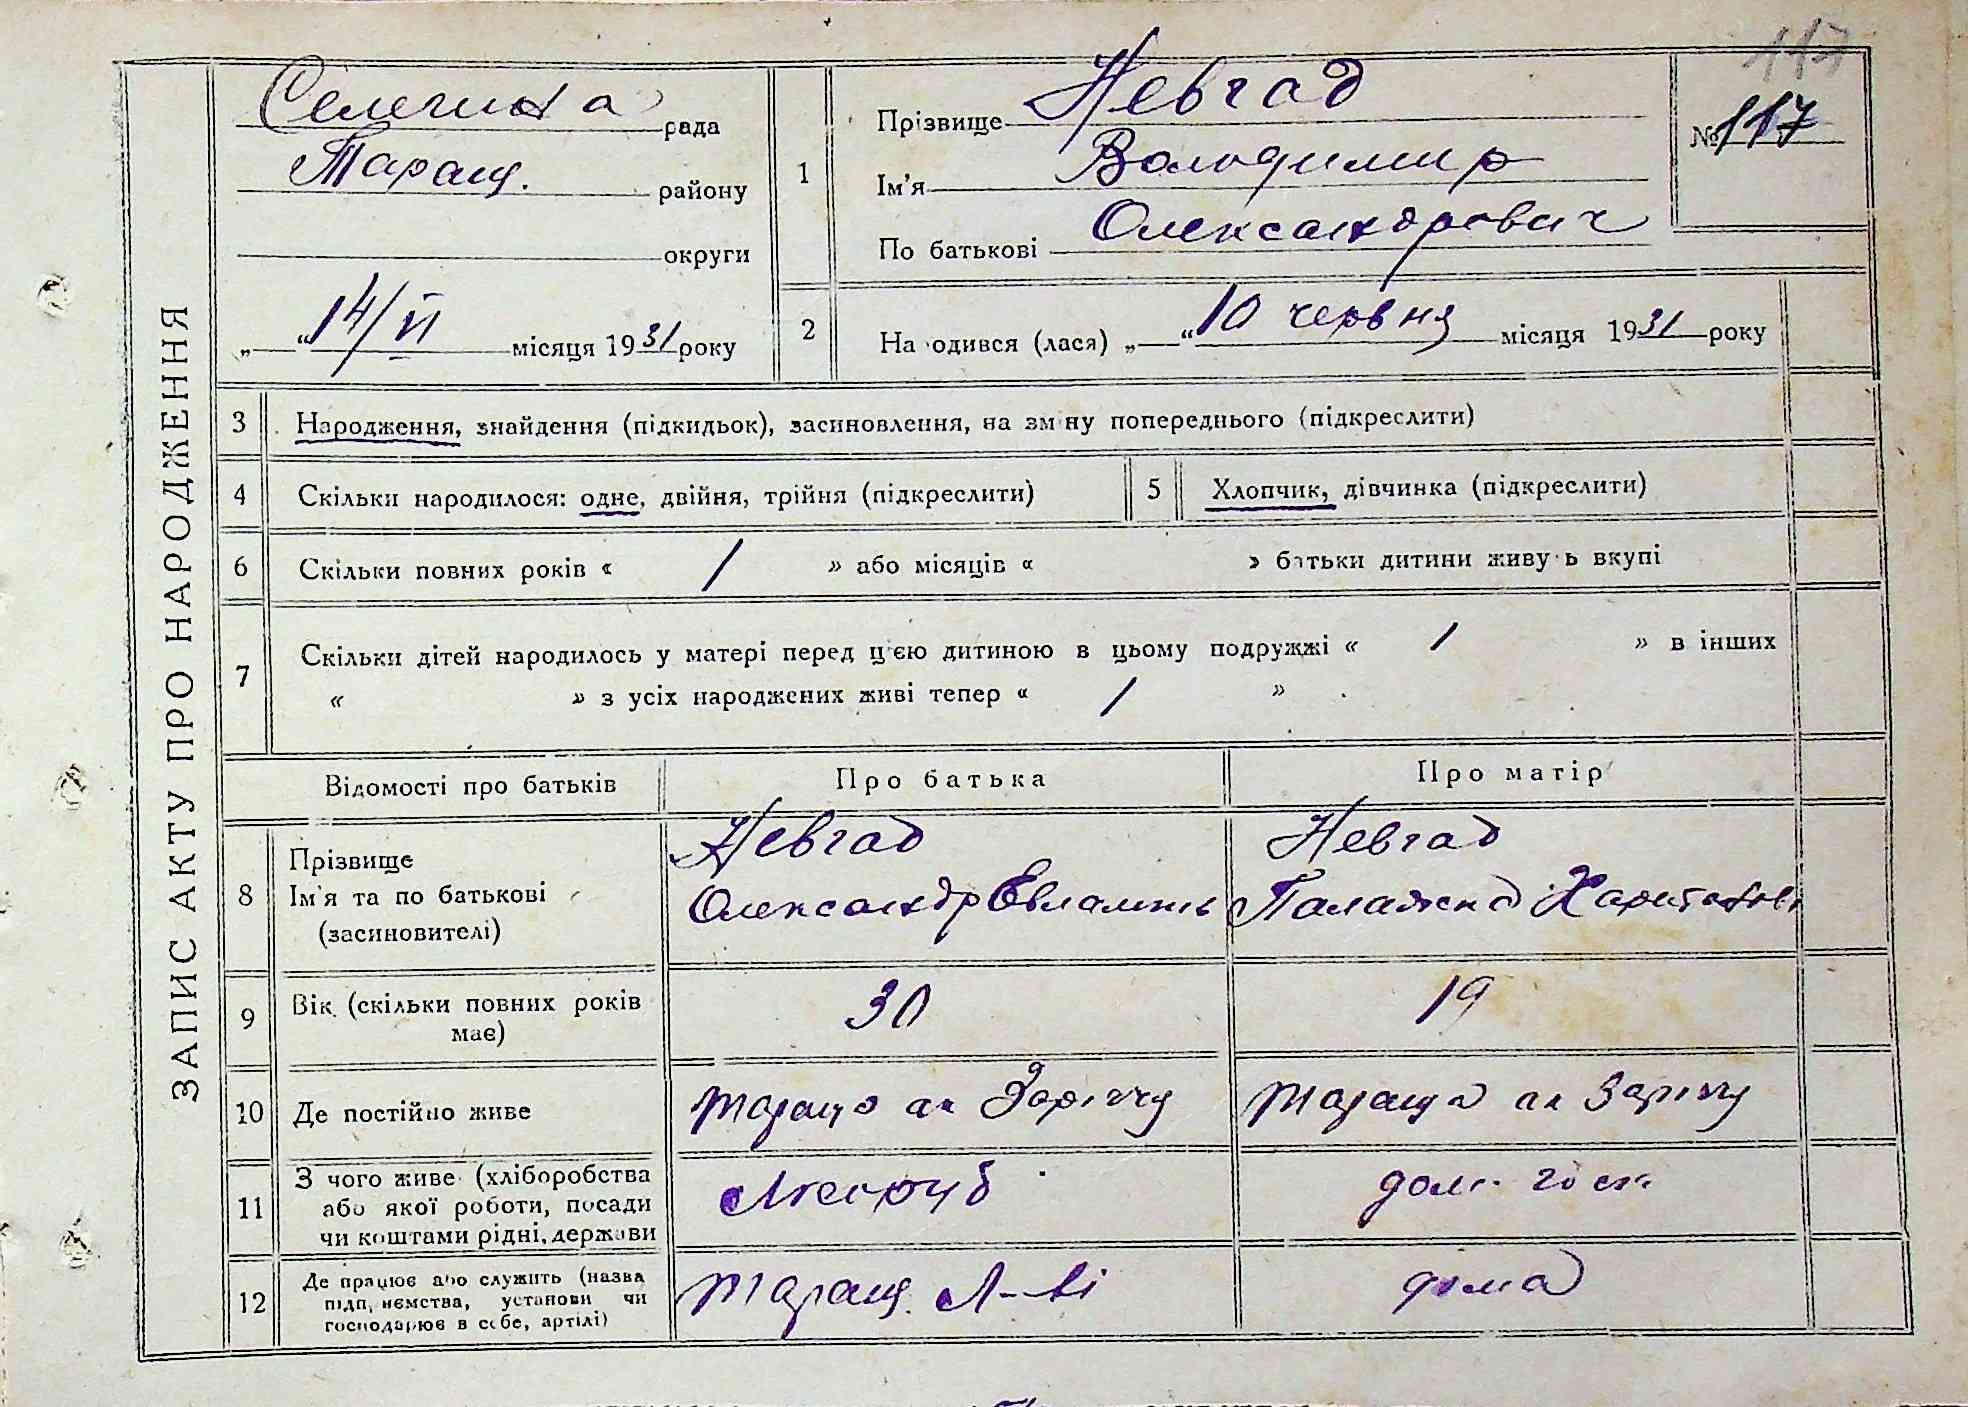 117
ЗАПИС АКТУ ПРО НАРОДЖЕННЯ
рада
Таращ. району
округи
„ “ 14/VI місяця 1931 року
1
Прізвище Невгад
Ім'я Володимир
По батькові Олександрович
№ 117
2
На одився (лася) „ “ 10 червня місяця 1931 року
3 Народження, знайдення (підкидьок), засиновлення, на зм ну попереднього (підкреслити)
4 Скільки народилося: одне, двійня, трійня (підкреслити) 5 Хлопчик, дівчинка (підкреслити)
6 Скільки повних років « / » або місяців « » батьки дитини живу ь вкупі
7 Скільки дітей народилось у матері перед ц'єю дитиною в цьому подружжі « / » в інших
« » з усіх народжених живі тепер « / »
Відомості про батьків Про батька Про матір
8 Прізвище
Ім'я та по батькові
(засиновителі)
Невгад
Олександр Евламп
Невгад
Палажка Харитонов
9 Вік (скільки повних років
має)
30 19
10 Де постійно живе Тараща Заріччу Тараща Заріччу
11 З чого живе (хліборобства
або якої роботи, посади
чи коштами рідні, держави
дом. госп
12 Де працює або служить (назва
підп, ємства, установи чи
господарює в себе, артілі)
Таращ. дома